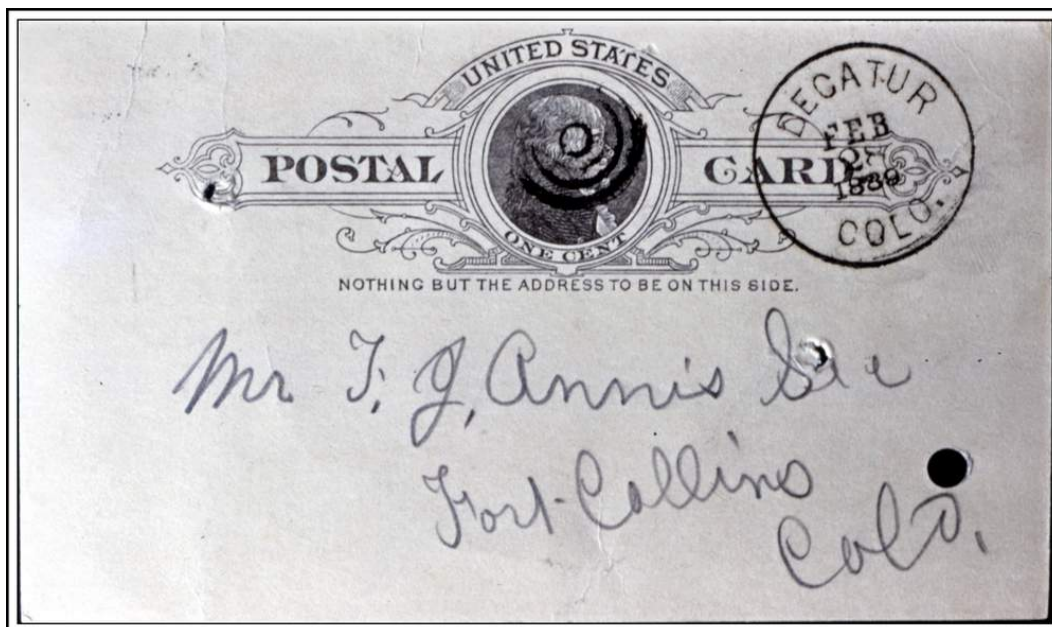 UNITED STATES
POSTAL CARD
ONE CENT
NOTHING BUT THE ADDRESS TO BE ON THIS SIDE.
DECATUR
FEB
27
1889
COLO.
Mr F. J. Annis Sec
Fort Collins
Colo.